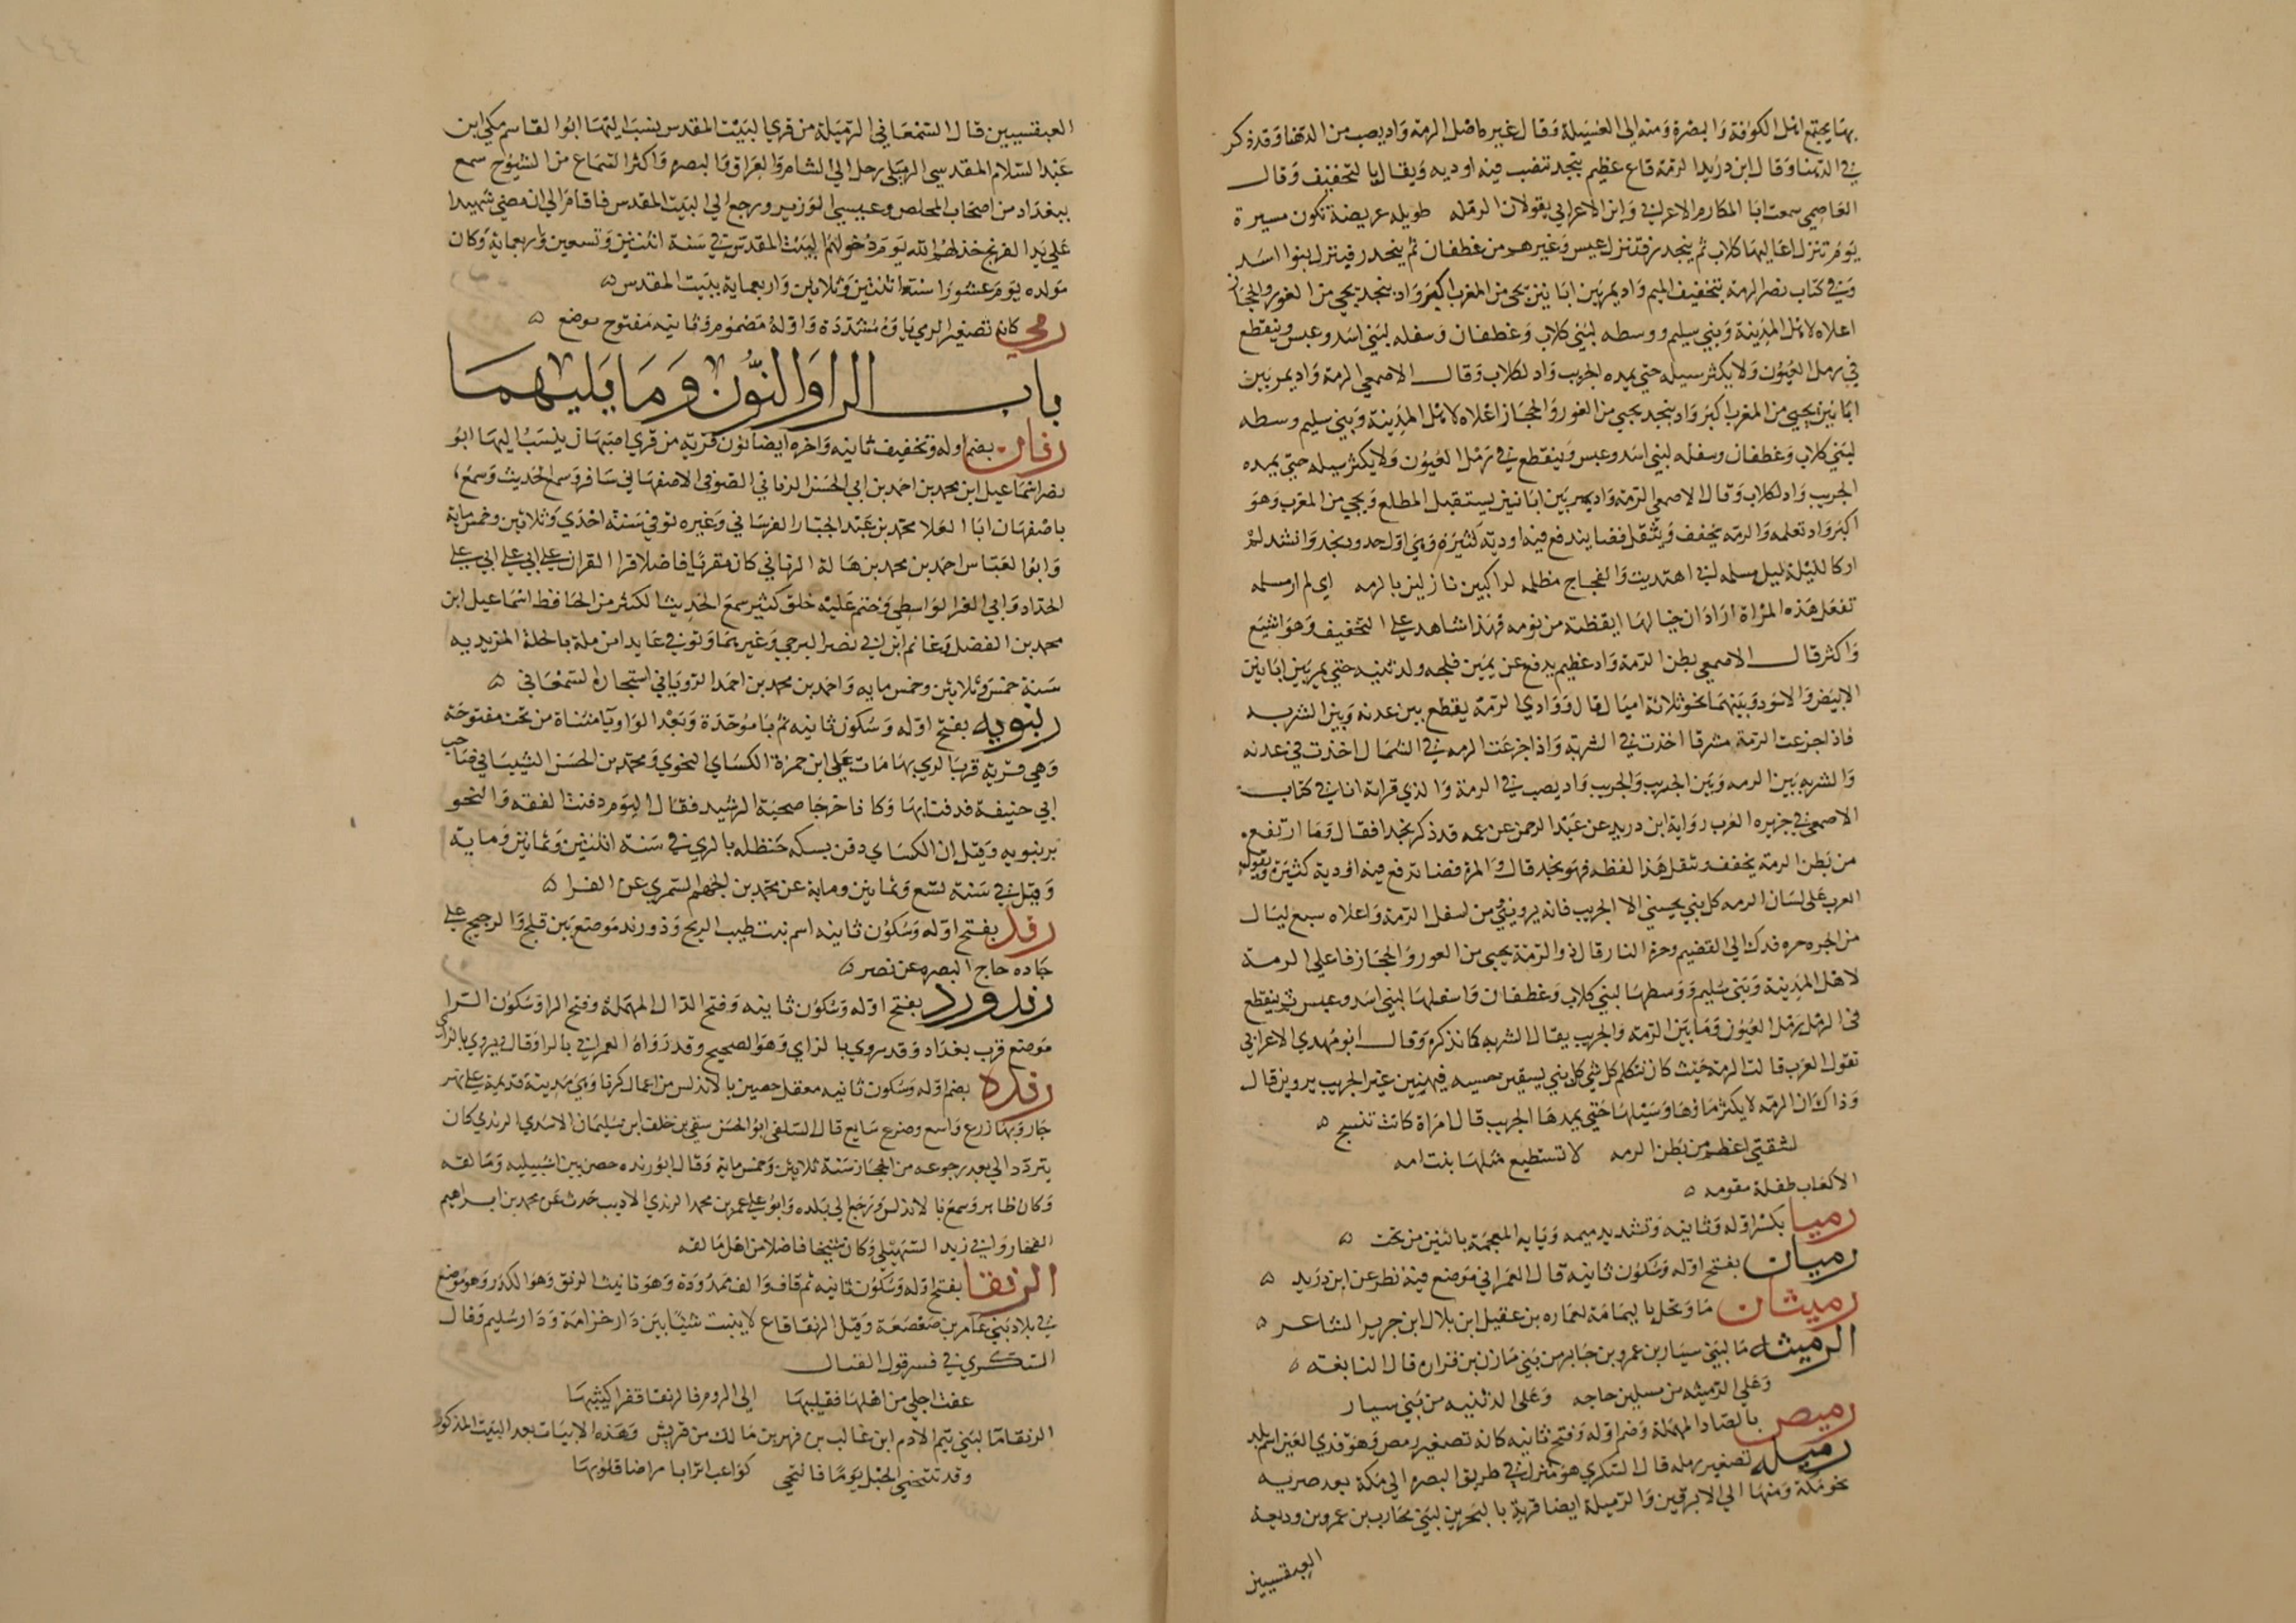 بها يجتمع اهل الكوفة والبصرة ومنه الي العسيلة وقال غيره اصل الرمة واد يصب من الدهنا وقد ذكر
في الدهنا وقال ابن دريد الرمة قاع عظيم بنجد تنصب فيه اوديه ويقال بالتخفيف وقال
العاصمي سمعت ابا المكارم الاعرابي وابن الاعرابي يقولان الرمله طويله عريضة تكون مسيرة
يوم تنزل اعاليها كلاب ثم ينحدر فتنزل عبس وغيرهم من غطفان ثم ينحدر فينزل بنوا اسد
وفي كتاب نصر الرمة بتخفيف الميم واد يمر بين ابانين يجي من المغرب اكبر واد بنجد يجي من الغور والحجاز
اعلاه لاهل المدينة وبني سليم ووسطه لبني كلاب وغطفان وسفله لبني اسد وعبس وينقطع
في رمل العيون ولا يكثر سيله حتي يمده الجريب واد لكلاب وقال الاصمعي الرمة واد يمر بين
ابانين يجيي من المغرب اكبر واد بنجد يجيي من الغور والحجاز اعلاه لاهل المدينة وبني سليم وسطه
لبني كلاب وغطفان وسفله لبني اسد وعبس وينقطع في رمل العيون ولا يكثر سيله حتي يمده
الجريب واد لكلاب وقال الاصمعي الرمه واد يمر بين ابانين يستقبل المطلع ويجي من المغرب وهو
اكبر واد نعلمه والرمه يخفف ويثقل فضا يندفع فيه اودية كثيره وهي اول حدود نجد وانشد لم
ار كالليلة ليل مسلمه اني اهتديت والفجاج مظلمه لراكبين نازلين بالرمه اي لم ار مسلمه
تفعل هذه المراة اراد ان خيالها ايقظته من نومه فهذا شاهد علي التخفيف وهو اشيع
واكثر قال الاصمعي بطن الرمة واد عظيم يدفع عن يمين فلجه والدثنيه حتي يمر بين ابانين
الابيض والاسود وبينهما نحو ثلاثة اميال قال ووادي الرمة يقطع بين عدنه وبين الشربه
فاذا جزعت الرمة مشرقا اخذت في الشربه واذا جزعت الرمه في الشمال اخذت في عدنه
والشربه بين الرمه وبين الجريب والجريب واد يصب في الرمة والذي قراته انا في كتاب
الاصمعي في جزيره العرب رواية ابن دريد عن عبد الرحمن عن عمه قد ذكر نجدا فقال وما ارتفع
من بطن الرمة يخفف ويثقل هذا لفظه فهو نجد قال والرمة فضا تدفع فيه اودية كثيرة وتقول
العرب علي لسان الرمه كل بني يحسيني الا الجريب فانه يرويني من اسفل الرمة واعلاه سبع ليال
من الحره حره فدك الي القضيم وحرة النار قال والرمة يجيي من الغور والحجاز فاعلي الرمة
لاهل المدينة وبني سليم ووسطها لبني كلاب وغطفان واسفلها لبني اسد وعبس ثم ينقطع
في الرمل رمل العيون وما بين الرمة والجريب يقال الشربه كما نذكره وقال ابو مهدي الاعرابي
تقول العرب قالت الرمة حيث كان تتكلم كل شي كل بني يسقين حسيه فيهنيين غير الجريب يروين قال
وذاك ان الرمة لا يكثر ماوها وسيلها حتي يمدها الجريب قال امراة كانت تنسج
لشقتي اعظم من بطن الرمه لا تستطيع مثلها بنت امه
الا كعاب طفلة مقومه
رميا بكسر اوله وثانيه وتشديد ميمه ويايه المعجمة باثنين من تحت
رميان بفتح اوله وسكون ثانيه قال العمراني موضع فيه نظر عن ابن دريد
رميثان ما ونخل باليمامة لعماره بن عقيل ابن بلال ابن جرير الشاعر
الرميثه ما لبني سيار بن عمرو بن جابر من بني مازن بن فزاره قال النابغه
وعلي الرميثه من سلين حاجه وعلي الدثنيه من بني سيار
رميص بالصاد المهملة وضم اوله وفتح ثانيه كانه تصغير رمص وهو قذي العين اسم بلد
رميله تصغير رمله قال السكري هو منزل في طريق البصره الي مكة بعد ضريه
نحو مكة ومنها الي الابرقين والرميلة ايضا قرية بالبحرين لبني محارب بن عمرو بن وديعة
العبقسيين
العبقسيين قال السمعاني الرميلة من قري البيت المقدس ينسب اليها ابوا القاسم مكي ابن
عبد السلام المقدسي الرميلي رحل الي الشام والعراق والبصره واكثر السماع من الشيوخ سمع
ببغداد من اصحاب المخلص وعيسي الوزير ورجع الي البيت المقدس فاقام الي ان مضي شهيدا
علي يد الفرنج خذلهم الله يوم دخولهم البيت المقدس في سنة اثنتين وتسعين واربعماية وكان
مولده يوم عشورا سنة اثنتين وثلاثين واربعماية ببيت المقدس
رمي كانه تصغير الرمي ياوه مشددة واوله مضموم وثانيه مفتوح موضع
باب الرا والنون وما يليهما
رنان بضم اوله وتخفيف ثانيه واخره ايضا نون قرية من قري اصبهان ينسب اليها ابو
نصر اسماعيل ابن محمد بن احمد بن ابي الحسن الرناني الصوفي الاصفهاني سافر وسمع الحديث وسمع
باصفهان ابا العلا محمد بن عبد الجبار الفرساني وغيره توفي سنة احدي وثلاثين وخمس ماية
وابوا العباس احمد بن محمد بن هالة الرناني كان مقريا فاضلا قرا القران علي ابي علي
الحداد وابي العز الواسطي وختم عليه خلق كثير سمع الحديث الكثير من الحافظ اسماعيل ابن
محمد بن الفضل وغانم ابن ابي نصر البرجي وغيرهما وتوفي عايدا من مكة بالحلة المزيديه
سنة خمس وثلاثين وخمس مايه واحمد بن محمد بن احمد الروياني استجازه السمعاني
رنبويه بفتح اوله وسكون ثانيه ثم با موحدة وبعد الواو يا مثناة من تحت مفتوحة
وهي قرية قرب الري بها مات علي ابن حمزة الكساي النحوي ومحمد بن الحسن الشيباني صاحب
ابي حنيفة فدفنا بها وكانا خرجا صحبة الرشيد فقال اليوم دفنت الفقه والنحو
برنبويه وقيل ان الكساي دفن بسكه حنظله بالري في سنة اثنتين وثمانين وماية
وقيل في سنة تسع وثمانين وماية عن محمد بن الجهم السمري عن الفرا
رند بفتح اوله وسكون ثانيه اسم نبت طيب الريح وذو رند موضع بين فلج والرجيج علي
جاده حاج البصره عن نصر
رندورد بفتح اوله وسكون ثانيه وفتح الدال المهملة وفتح الرا وسكون الرا
موضع قرب بغداد وقد يروي بالزاي وهو الصحيح وقد رواه العمراني بالرا وقال ويروي بالزاي
رندة بضم اوله وسكون ثانيه معقل حصين بالاندلس من اعمال كرنا وهي مدينة قديمة علي نهر
جار وبها زرع واسع وضرع سايع قال السلفي ابو الحسن سقي بن خلف ابن سليمان الاسدي الرندي كان
يتردد الي بعد رجوعه من الحجاز سنة ثلاثين وخمس ماية وقال ابو رنده حصن بين اشبيليه ومالقه
وكان ظاهر وسمع بالاندلس ورجع الي بلده وابو علي عمر بن محمد الرندي الاديب حدث عن محمد بن ابراهيم
الفخار وابي زيد السهيلي وكان شيخا فاضلا من اهل مالقه
الرنقا بفتح اوله وسكون ثانيه ثم قاف والف ممدودة وهو تانيث الرنق وهو الكدر وهو موضع
في بلاد بني عامر بن صعصعة وقيل الرنقا قاع لا ينبت شيئا بين دار خزامة ودار سليم وقال
السكري في فسر قول القتال
عفت اجلي من اهلها فقليبها الي الروم فالرنقا قفرا كثيبها
الرنقا ما لبني تيم الادم ابن غالب بن فهر بن مالك من قريش وهذه الابيات بعد البيت المذكور
وقد تنتحي الحبل يوما فانتحي كواعب اترابا مراضا قلوبها